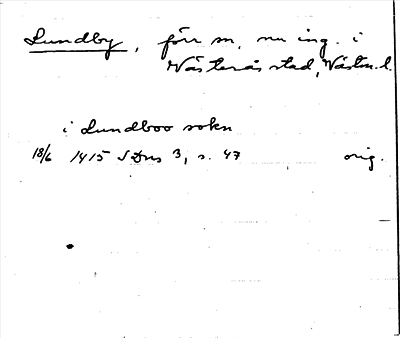 Lundby, förr sn, nu ing. i
Västerås stad, Västm.l.
i Lundboo sokn
18/6 1415 SDns 3, s. 47 orig.